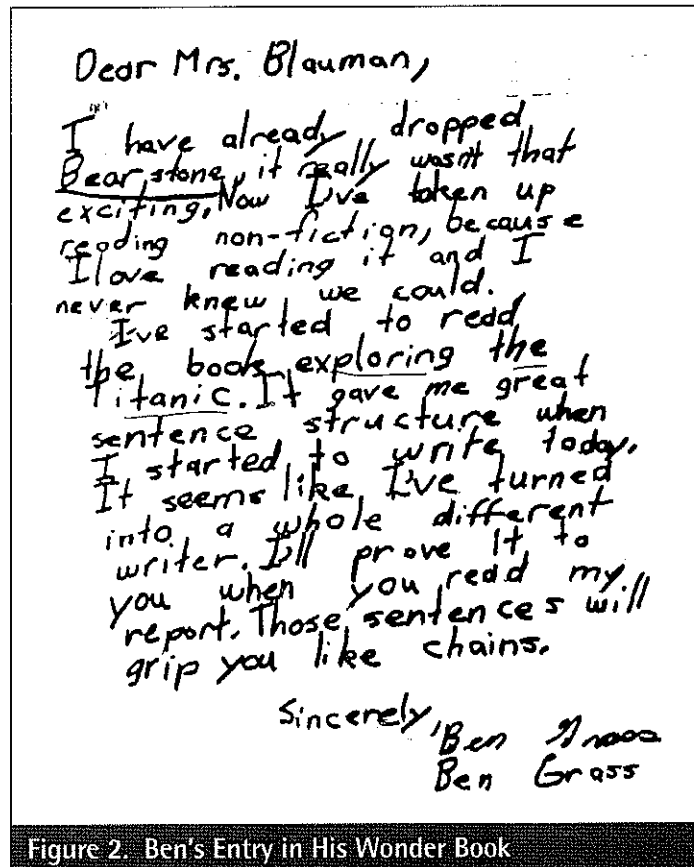 Dear Mrs. Blauman,
I have already dropped
Bearstone, it really wasn't that
exciting, Now I've taken up
reading non-fiction, because
I love reading it and I
never knew we could.
I've started to read
the book exploring the
Titanic. It gave me great
sentence structure when
I started to write today.
It seems like I've turned
into a whole different
writer. I'll prove it to
you when you read my
report. Those sentences will
grip you like chains.
Sincerely,
Ben Grass
Ben Grass
Figure 2. Ben's Entry in His Wonder Book